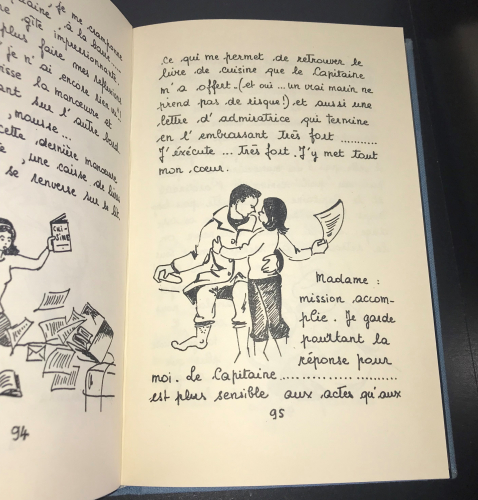 , je me cramponne
gîte impressionnante
plus faire mes réflexions
je n'ai encore rien vu"!
la manoeuvre et
sur l'autre bord
, mousse...
cette dernière manoeuvre
, une caisse de livres
se renverse sur le lit.
CUI-
SINE
94
ce qui me permet de retrouver le
livre de cuisine que le Capitaine
m'a offert. (et oui ... un vrai marin ne
prend pas de risque!) et aussi une
lettre d'admiratrice qui termine
en l'embrassant très fort ..........
J'éxécute ... très fort. J'y met tout
mon coeur.
Madame :
mission accom-
plie. Je garde
pourtant la
réponse pour
moi. Le Capitaine ......................
est plus sensible aux actes qu'aux
95